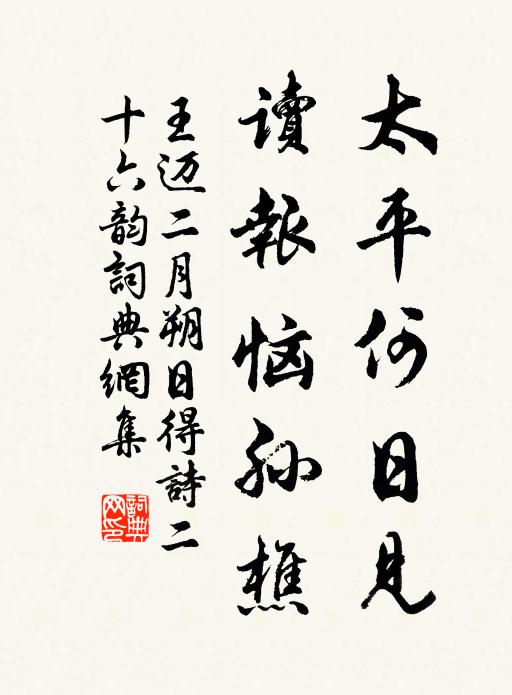 太平何日見
讀報恼孙樵
王迈二月朔日得詩二
十六韵詞典網集
詞典
网印